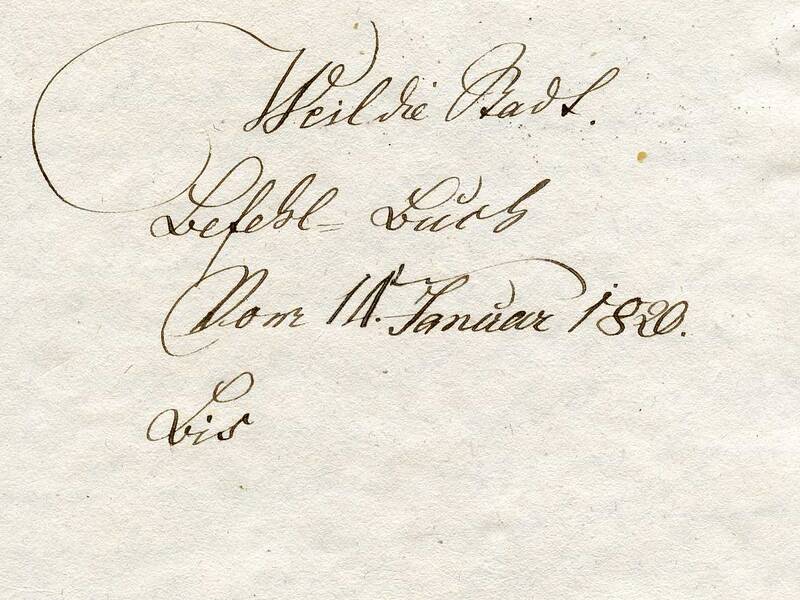 Weil die Stadt.
Befehl= Buch
Vom 14. Januar 1820.
Bis